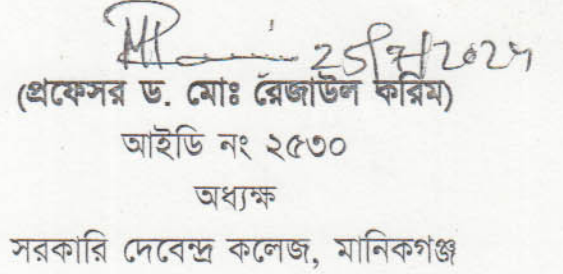 25/7/2024
(প্রফেসর ড. মোঃ রেজাউল করিম)
আইডি নং ২৫৩০
অধ্যক্ষ
সরকারি দেবেন্দ্র কলেজ, মানিকগঞ্জ